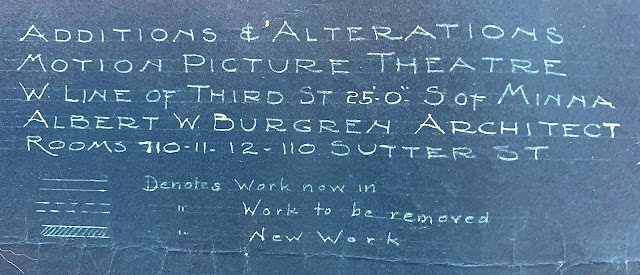 ADDITIONS & ALTERATIONS
MOTION PICTURE THEATRE
W. LINE OF THIRD ST 25'-0" S OF MINNA
ALBERT W. BURGREN ARCHITECT
ROOMS 710-11-12-110 SUTTER ST
Denotes Work now in
" Work to be removed
" New Work